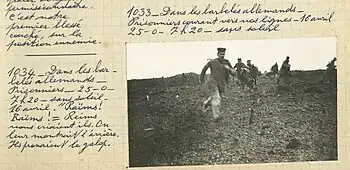 permissionnaire.
C'est notre
premier blessé
couché, sur la
position ennemie.
1034 _ Dans les bar-
belés allemands _
Prisonniers _ 25-0 _
7h20 _ sans soleil
16 avril. "Raïms!
Raïms! = Reims
nous criaient-ils. On
leur montrait l'arrière.
Ils prenaient le galop.
1033 _ Dans les barbelés allemands _
Prisonniers courant vers nos lignes _ 16 avril
25-0 _ 7h20 _ sans soleil